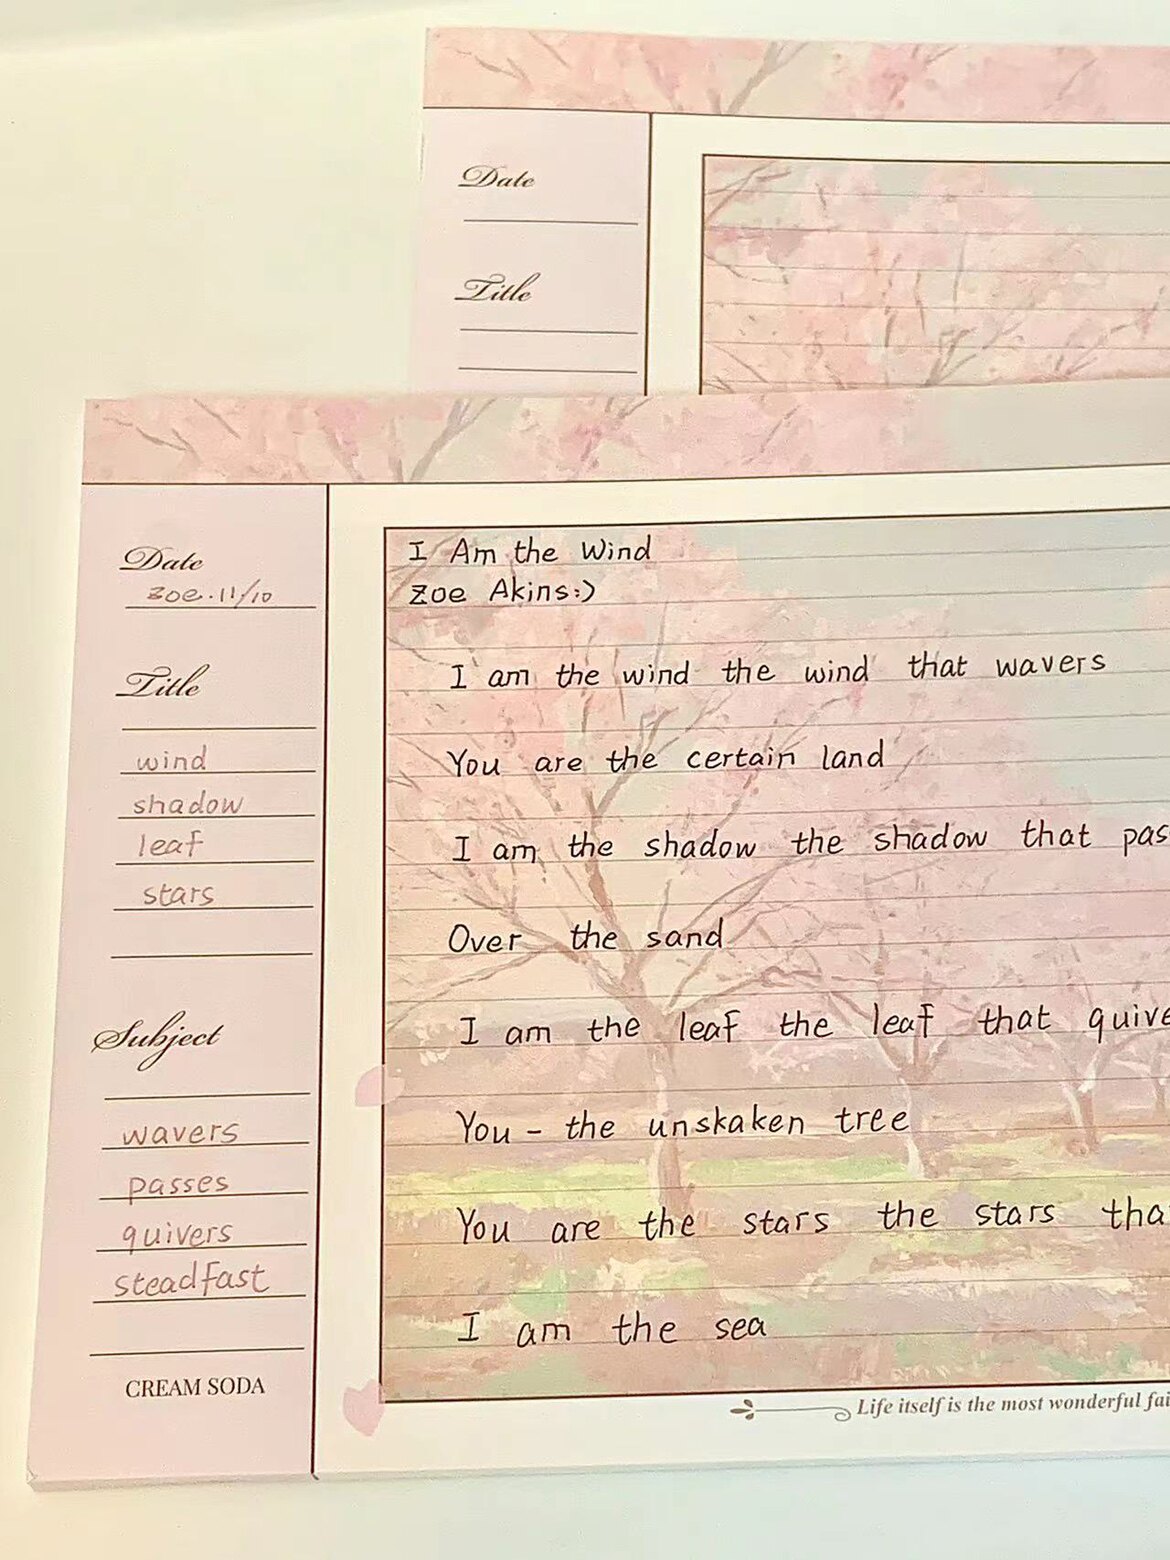 Date
Title
Date
zoe.11/10
Title
wind
shadow
leaf
stars
Subject
wavers
passes
quivers
steadfast
CREAM SODA
I Am the Wind
Zoe Akins:)
I am the wind the wind that wavers
You are the certain land
I am the shadow the shadow that pas
Over the sand
I am the leaf the leaf that quive
You - the unskaken tree
You are the stars the stars tha
I am the sea
Life itself is the most wonderful fai